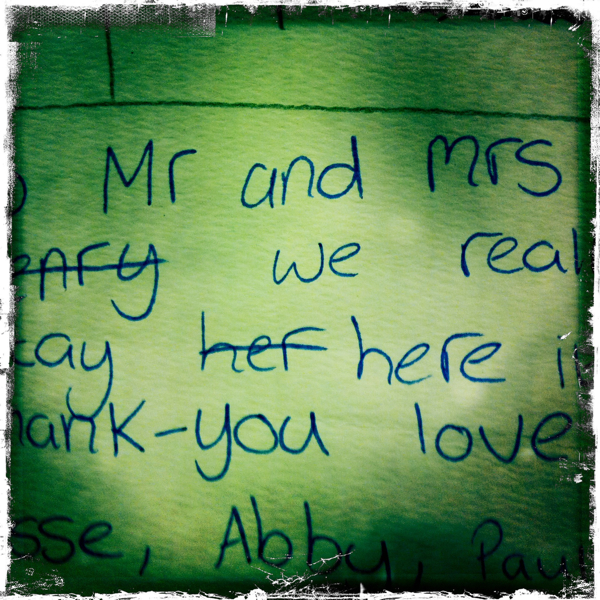 o Mr and Mrs
enry we real
tay her here i
hank-you love
sse, Abby, Pau